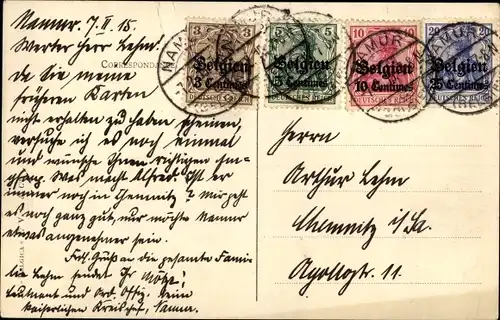 Namur, 7.II.15.
Werter Herr Lehm!
Da Sie meine
früheren Karten
nicht erhalten zu haben scheinen,
versuche ich es noch einmal
und wünsche Ihnen richtigen
Was macht Alfred. Ist er
immer noch in Chemnitz? Mir geht
es noch ganz gut, nur möchte Namur
etwas angenehmer sein.
Frdl. Gruß an die gesamte Fami-
lie Lehm sendet Ihr
Leutnant und Ord. Offiz. beim
Kaiserlichen Kreischef, Namur.
CORRESPONDANCE
3
3
Belgien
3 Centimes
DEUTSCHES REICH
5
5
Belgien
5 Centimes
DEUTSCHES REICH
10
10
Belgien
10 Centimes
DEUTSCHES REICH
20
20
Belgien
25 Centimes
DEUTSCHES REICH
NAMUR
NAMUR
NAMUR
Herrn
Arthur Lehm
Chemnitz i/Sa.
Apollostr. 11.